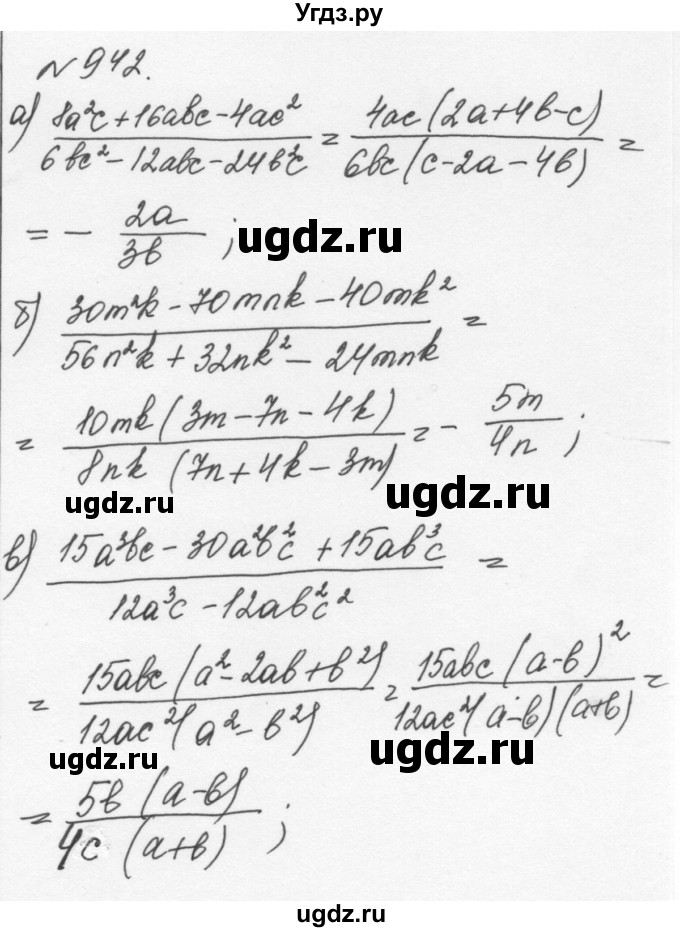 Угдз.ру
№942.
а) (8a²c+16abc-4ac²)/(6bc²-12abc-24b²c) = 4ac(2a+4b-c)/6bc(c-2a-4b) =
= - 2a/3b ;
ugdz.ru
б) (30m²k-70mnk-40mk²)/(56n²k+32nk²-24mnk) =
= 10mk(3m-7n-4k)/8nk(7n+4k-3m) = - 5m/4n ;
ugdz.ru
ugdz.ru
в) (15a³bc-30a²b²c²+15ab³c)/(12a³c-12ab²c²) =
= 15abc(a²-2ab+b²)/12ac²(a²-b²) = 15abc(a-b)²/12ac²(a-b)(a+b) =
ugdz.ru
ugdz.ru
= 5b(a-b)/4c(a+b) ;
ugdz.ru
ugdz.ru